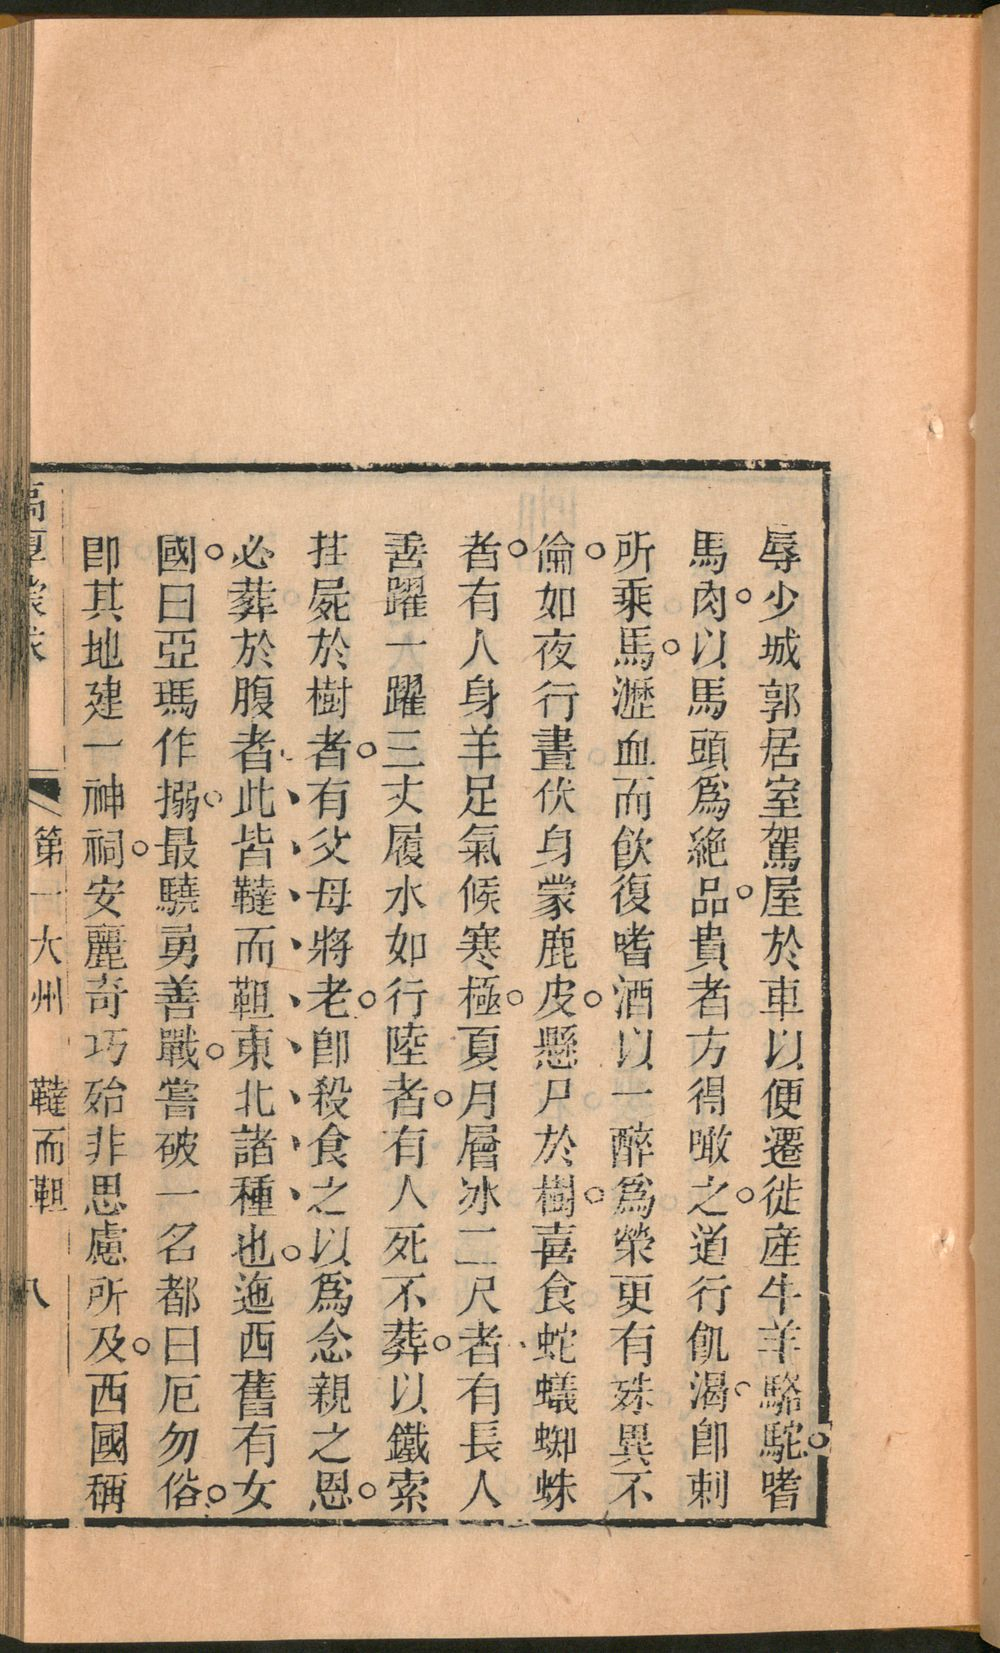 辱少城郭居室駕屋於車以便遷徙產牛羊駱駝。嗜
馬肉。以馬頭爲絶品。貴者方得噉之。道行飢渴。卽刺
所乘馬。瀝血而飮復嗜酒以一醉爲榮更有殊異不
倫。如夜行晝伏身蒙鹿皮。懸尸於樹。喜食蛇蟻蜘蛛
者。有人身羊足氣候寒極。夏月層冰二尺者有長人
善躍一躍三丈履水如行陸者。有人死不葬。以鐵索
挂屍於樹者。有父母將老。卽殺食之以爲念親之恩。
必葬於腹者、此皆韃而靼東北諸種也。迤西舊有女
國。曰亞瑪作搦。最驍勇善戰。嘗破一名都曰厄勿俗。
卽其地建一神祠。安麗奇巧殆非思慮所及。西國稱
第一大州 韃而靼 八